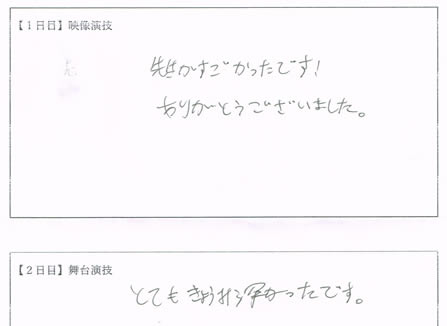 【1日目】映像演技
先生がすごかったです!
ありがとうございました。
【2日目】舞台演技
とても かったです。